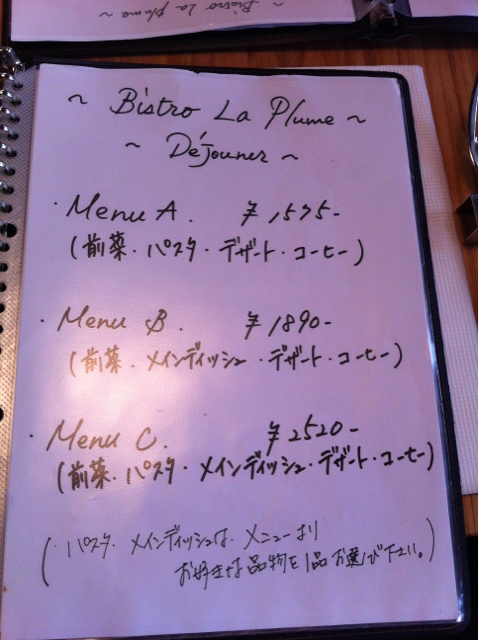 ~ Bistro La Plume ~
~ Bistro La Plume ~
~ Déjouner ~
· Menu A. ¥1575-
(前菜・パスタ・デザート・コーヒー)
· Menu B. ¥1890-
(前菜・メインディッシュ・デザート・コーヒー)
· Menu C. ¥2520-
(前菜・パスタ・メインディッシュ・デザート・コーヒー)
(・パスタ・メインディッシュは、メニューより
お好きな品物を1品お選び下さい。)